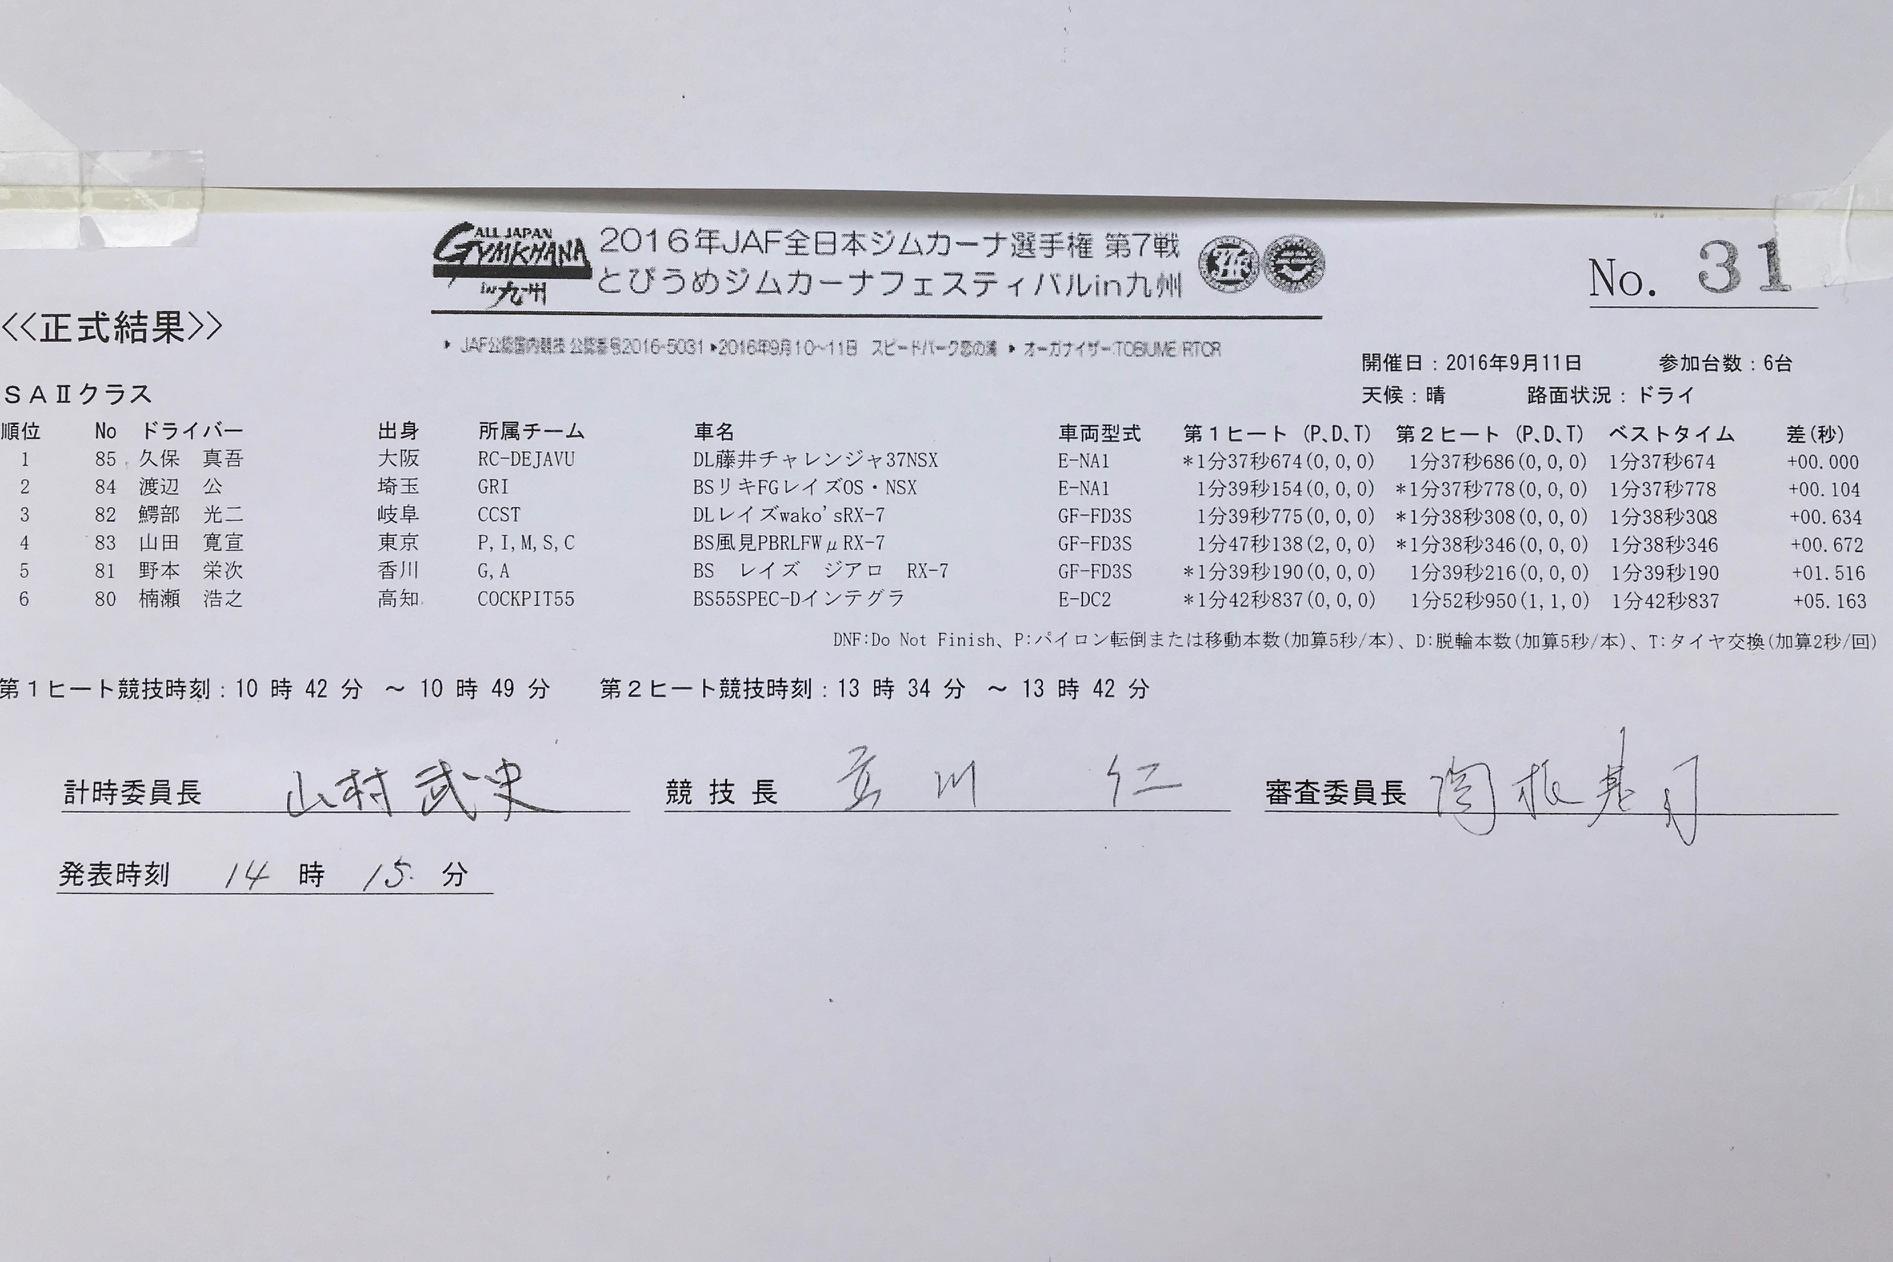 ALL JAPAN
GYMKHANA
in 九州
2016年JAF全日本ジムカーナ選手権 第7戦
とびうめジムカーナフェスティバルin九州
No. 31
<<正式結果>>
JAF公認国内競技 公認番号2016-5031 ▸2016年9月10~11日 スピードパーク恋の浦 ▸ オーガナイザー:TOBIUME/RTOR
開催日：2016年9月11日 参加台数：6台
ＳＡⅡクラス
天候：晴 路面状況：ドライ
順位 No ドライバー 出身 所属チーム 車名 車両型式 第１ヒート (P、D、T) 第２ヒート (P、D、T) ベストタイム 差(秒)
1 85 久保 真吾 大阪 RC-DEJAVU DL藤井チャレンジャ37NSX E-NA1 *1分37秒674(0,0,0) 1分37秒686(0,0,0) 1分37秒674 +00.000
2 84 渡辺 公 埼玉 GRI BSリキFGレイズOS・NSX E-NA1 1分39秒154(0,0,0) *1分37秒778(0,0,0) 1分37秒778 +00.104
3 82 鰐部 光二 岐阜 CCST DLレイズwako'sRX-7 GF-FD3S 1分39秒775(0,0,0) *1分38秒308(0,0,0) 1分38秒308 +00.634
4 83 山田 寛宣 東京 P,I,M,S,C BS風見PBRLFWμRX-7 GF-FD3S 1分47秒138(2,0,0) *1分38秒346(0,0,0) 1分38秒346 +00.672
5 81 野本 栄次 香川 G,A BS レイズ ジアロ RX-7 GF-FD3S *1分39秒190(0,0,0) 1分39秒216(0,0,0) 1分39秒190 +01.516
6 80 楠瀬 浩之 高知 COCKPIT55 BS55SPEC-Dインテグラ E-DC2 *1分42秒837(0,0,0) 1分52秒950(1,1,0) 1分42秒837 +05.163
DNF:Do Not Finish、P:パイロン転倒または移動本数(加算5秒/本)、D:脱輪本数(加算5秒/本)、T:タイヤ交換(加算2秒/回)
第１ヒート競技時刻：10 時 42 分 ～ 10 時 49 分 第２ヒート競技時刻：13 時 34 分 ～ 13 時 42 分
計時委員長 山村 武史 競技長 川 仁 審査委員長
発表時刻 14 時 15 分